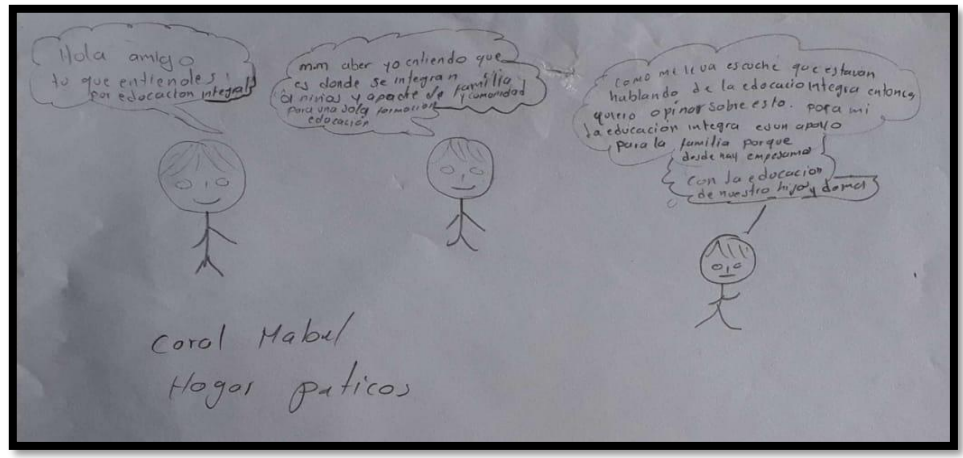 Hola amigo
tu que entiendes
por educacion integral
mm aber yo entiendo que
es donde se integran
niñas y aparte de familia
y comonidad
para una sola formacion
educación
como me iva escuché que estavan
hablando de la educacio integra entonces
quiero opinar sobre esto. para mi
la educacion integra es un apollo
para la familia porque
desde hay empesamos
con la educacion
de nuestro hijos y demas
Coral Mabel
Hogar paticos